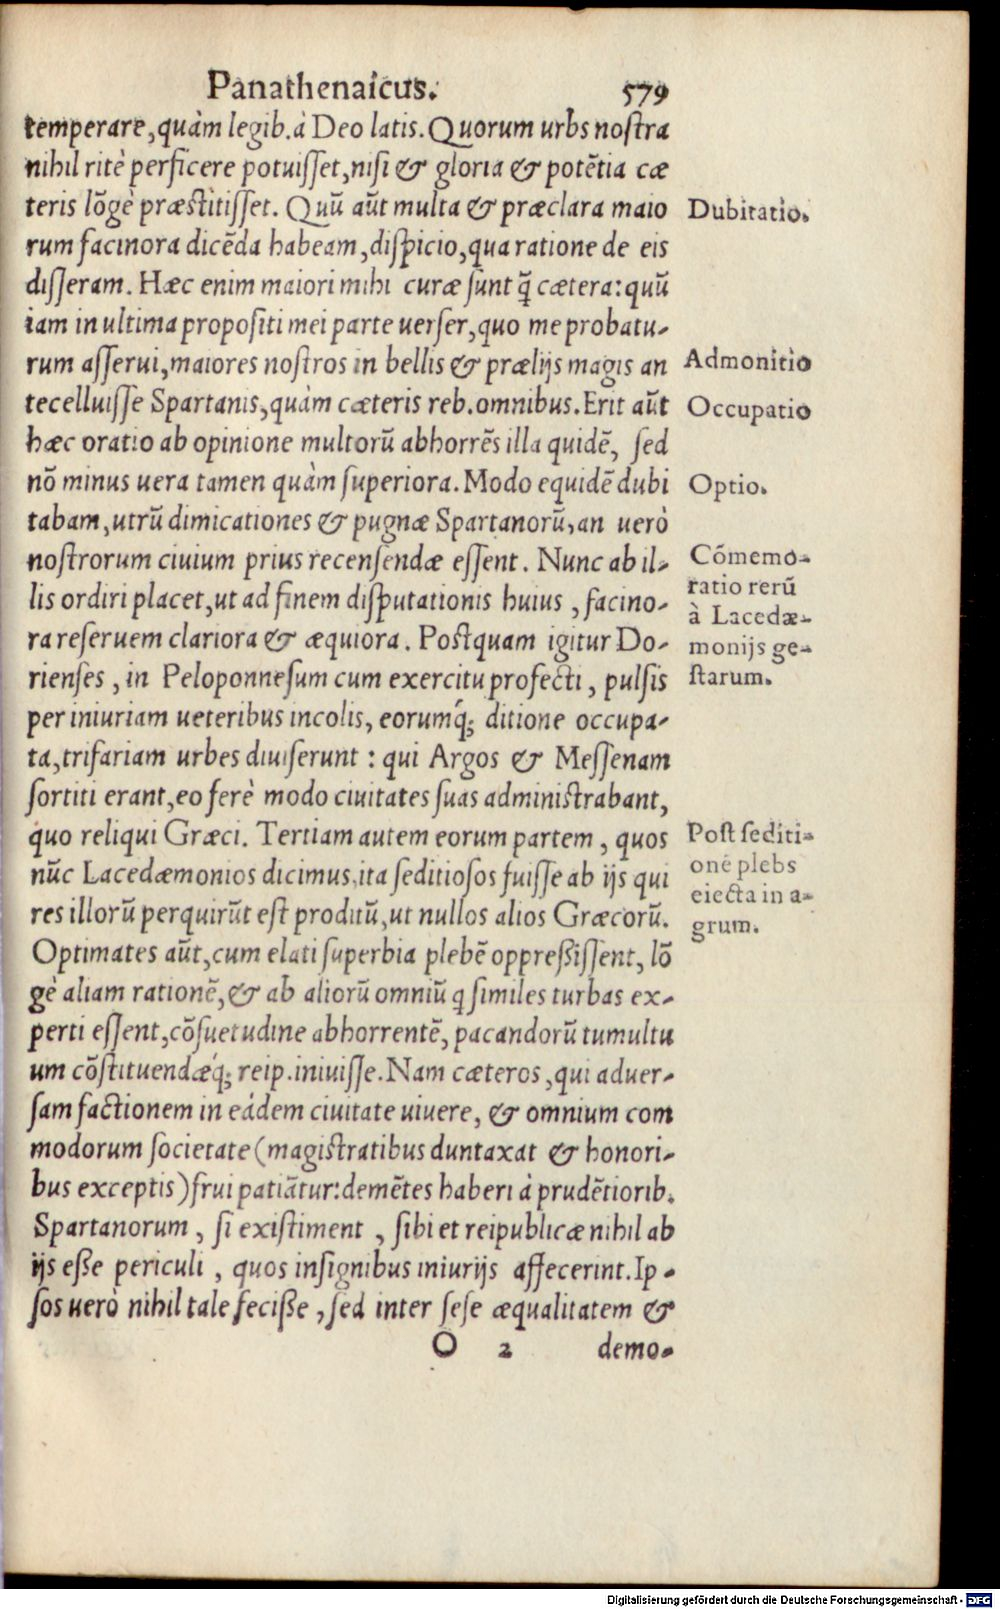 Panathenaicus. 579
temperare, quàm legib. à Deo latis. Quorum urbs nostra
nihil ritè perficere potuisset, nisi & gloria & potẽtia cæ
teris lõgè præstitisset. Quũ aũt multa & præclara maio
rum facinora dicẽda habeam, dispicio, qua ratione de eis
disseram. Hæc enim maiori mihi curæ sunt q̃ cætera: quũ
iam in ultima propositi mei parte uerser, quo me probatu-
rum asserui, maiores nostros in bellis & prælijs magis an
tecelluisse Spartanis, quàm cæteris reb. omnibus. Erit aũt
hæc oratio ab opinione multorũ abhorrẽs illa quidẽ, sed
nõ minus uera tamen quàm superiora. Modo equidẽ dubi
tabam, utrũ dimicationes & pugnæ Spartanorũ, an uerò
nostrorum ciuium prius recensendæ essent. Nunc ab il-
lis ordiri placet, ut ad finem disputationis huius, facino-
ra reseruem clariora & æquiora. Postquam igitur Do-
rienses, in Peloponnesum cum exercitu profecti, pulsis
per iniuriam ueteribus incolis, eorumq́; ditione occupa-
ta, trifariam urbes diuiserunt: qui Argos & Messenam
sortiti erant, eo ferè modo ciuitates suas administrabant,
quo reliqui Græci. Tertiam autem eorum partem, quos
nũc Lacedæmonios dicimus, ita seditiosos fuisse ab ijs qui
res illorũ perquirũt est proditũ, ut nullos alios Græcorũ.
Optimates aũt, cum elati superbia plebẽ oppreßissent, lõ
gè aliam rationẽ, & ab aliorũ omniũ q similes turbas ex-
perti essent, cõsuetudine abhorrentẽ, pacandorũ tumultu
um cõstituendæq́; reip. iniuisse. Nam cæteros, qui aduer-
sam factionem in eádem ciuitate uiuere, & omnium com
modorum societate (magistratibus duntaxat & honori-
bus exceptis) frui patiãtur: demẽtes haberi à prudẽtiorib.
Spartanorum, si existiment, sibi et reipublicæ nihil ab
ijs eße periculi, quos insignibus iniurijs affecerint. Ip-
sos uerò nihil tale feciße, sed inter sese æqualitatem &
O 2 demo-
Dubitatio.
Admonitio
Occupatio
Optio.
Cõmemo-
ratio rerũ
à Lacedæ-
monijs ge-
starum.
Post sediti-
onẽ plebs
eiecta in a-
grum.
Digitalisierung gefördert durch die Deutsche Forschungsgemeinschaft - DFG